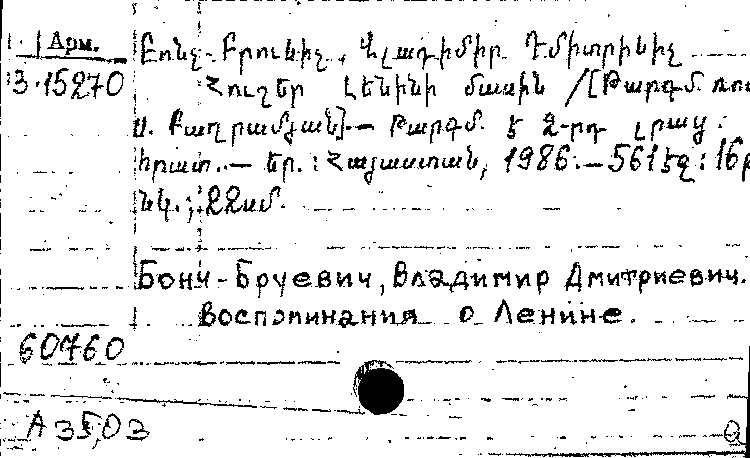 Арм.
Բոնչ-Բրուևիչ, Վլադիմիր Դմիտրիևիչ
3.15270
Հուշեր Լենինի մասին /[Թարգմ. ռու
Ս. Բաղրամյան].— Թարգմ. է 2-րդ լրաց.
հրատ.— Եր.: Հայաստան, 1986.— 561 էջ: 16
նկ.; 22սմ.
Бонч-Бруевич, Владимир Дмитриевич.
Воспоминания о Ленине.
60760
A 35,03